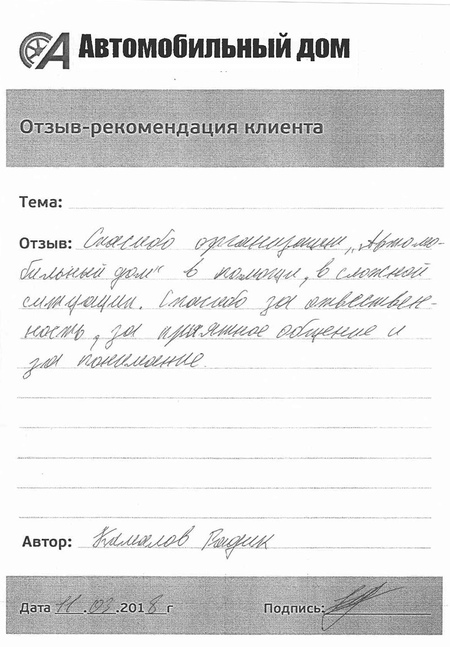 Автомобильный дом
Отзыв-рекомендация клиента
Тема:
Отзыв: Спасибо организации „Автомо-
бильный дом" в помощи, в сложной
ситуации. Спасибо за ответствен-
ность, за приятное общение и
за понимание.
Автор: Камалов Радик
Дата 11.03.2018 г Подпись: